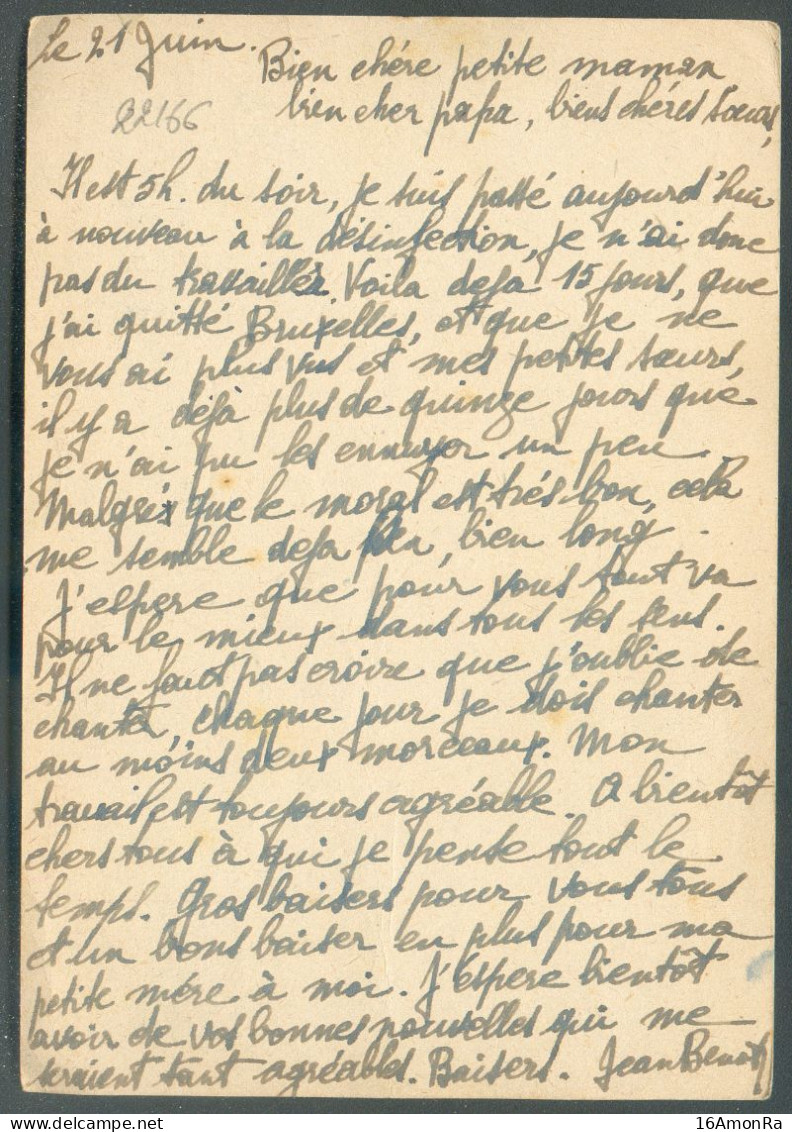 Le 21 Juin.
Bien chére petite maman
22166
bien cher papa, biens chéres sœurs,
Il est 5h. du soir, je suis passé aujourd'hui
à nouveau à la désinfection, je n'ai donc
pas du travailler. Voila deja 15 jours, que
j'ai quitté Bruxelles, et que je ne
vous ai plus vus et mes petites sœurs,
il y a déjà plus de quinze jours que
je n'ai pu les ennuyer un peu.
Malgré que le moral est trés bon, cela
me semble deja bien, bien long.
J'espere que pour vous tout va
pour le mieux dans tous les sens.
Il ne faut pas croire que j'oublie de
chanter, chaque jour je dois chanter
au moins deux morceaux. Mon
travail est toujours agréable. A bientôt
chers tous à qui je pense tout le
temps. Gros baisers pour vous tous
et un bons baiser en plus pour ma
petite mére à moi. J'éspere bientôt
avoir de vos bonnes nouvelles qui me
seraient tant agréables. Baisers. Jean
16AmonRa